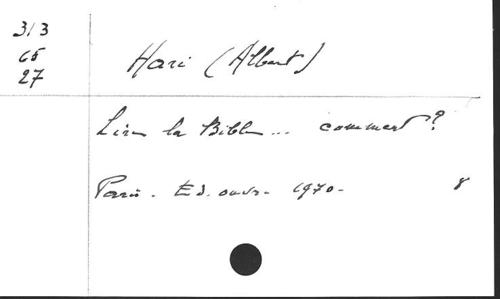 313
65
27
Hari (Albert)
Lire la Bible... comment?
Paris. Ed. ouvr. 1970-
8